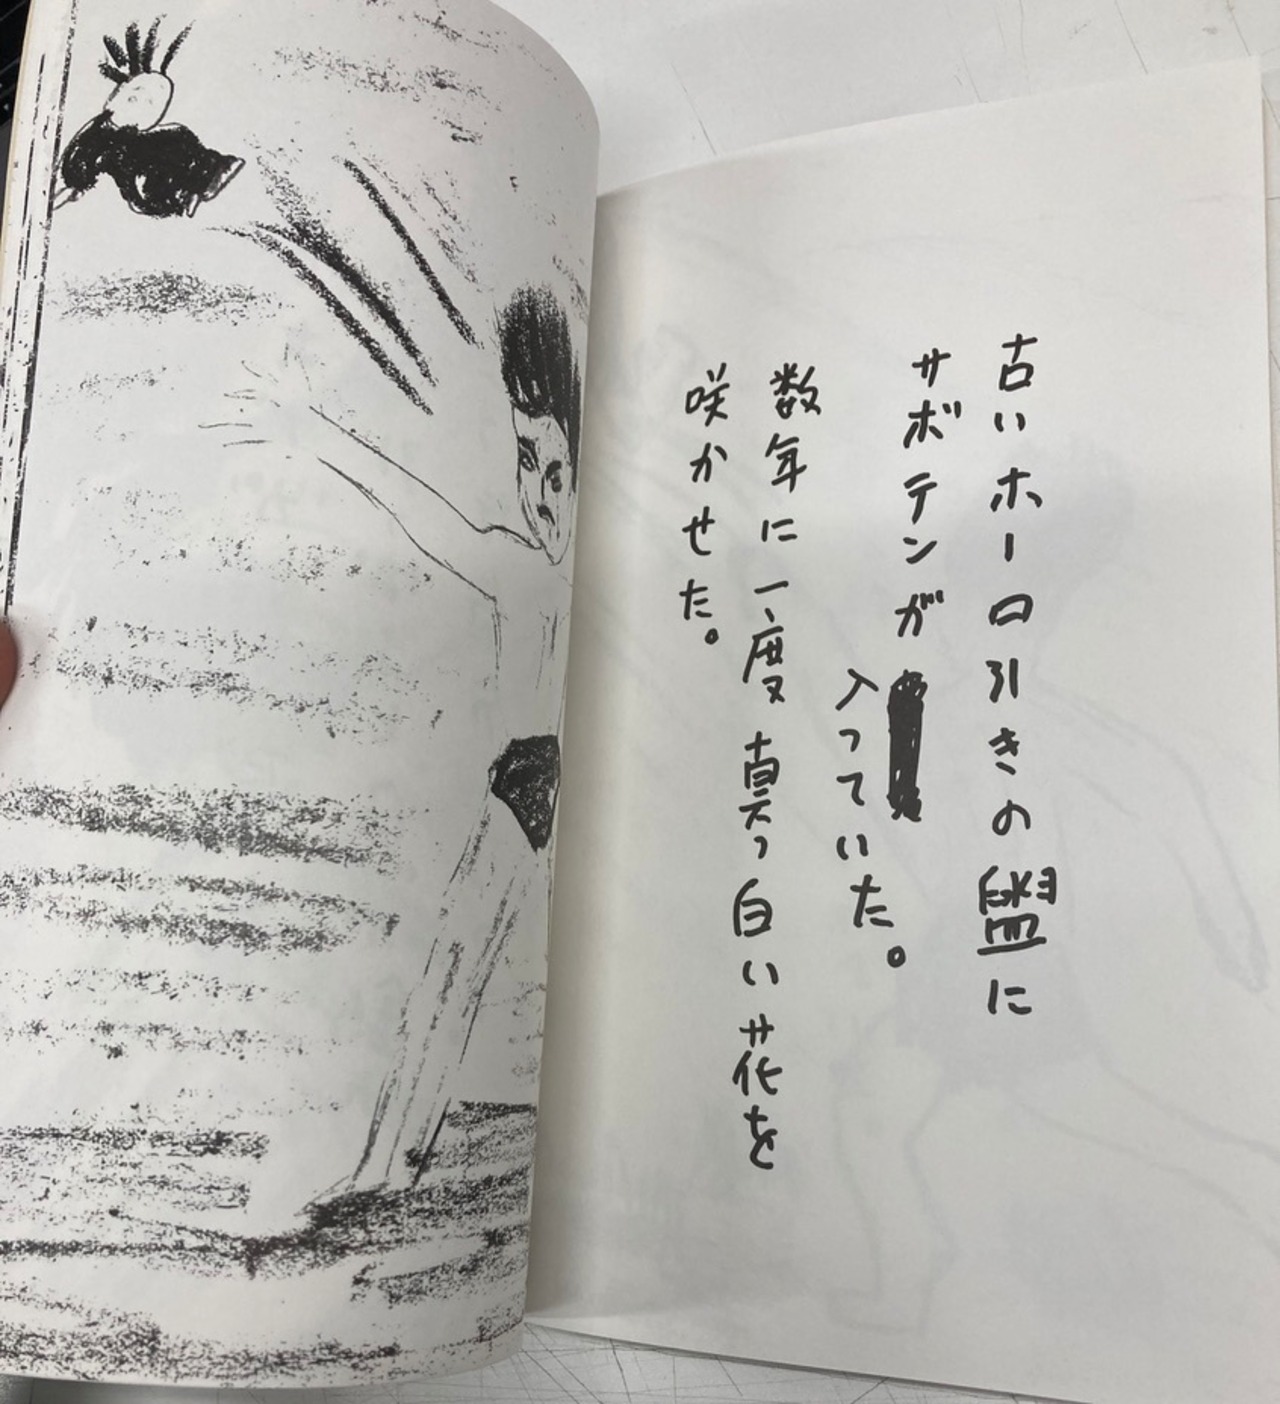 古いホーロ引きの盥に
サボテンが
入っていた。
数年に一度真っ白い花を
咲かせた。